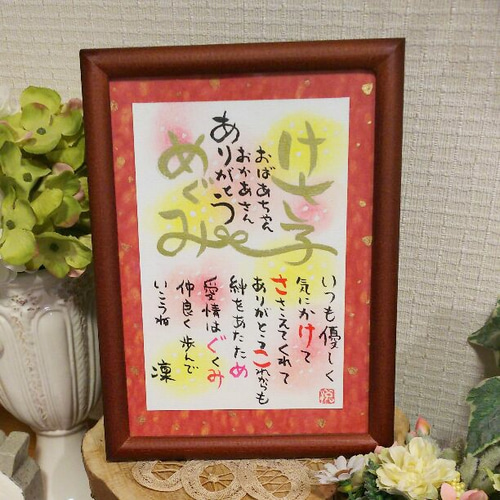 けさ子
おばあちゃん
おかあさん
ありがとう
めぐみ
いつも優しく
気にかけて
ささえてくれて
ありがとうこれからも
絆をあたため
愛情はぐくみ
仲良く歩んで
いこうね
凜